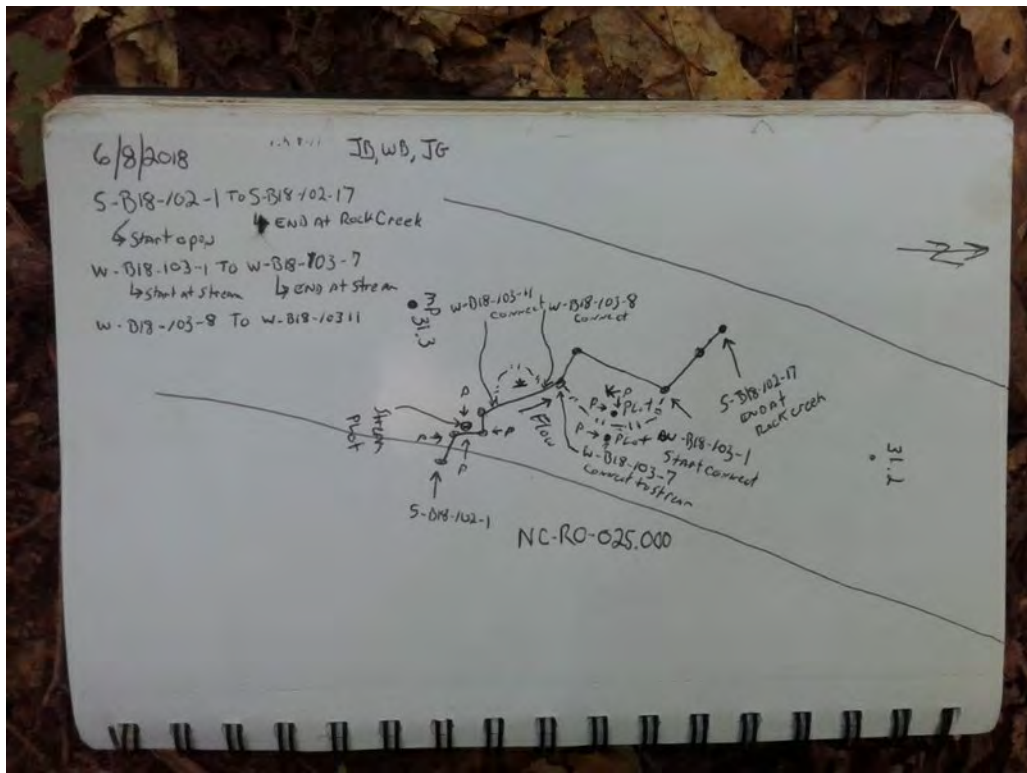 6/8/2018
JB, WB, JG
S-B18-102-1 TO S-B18-102-17
↳ Start open
↳ END At Rock Creek
W-B18-103-1 TO W-B18-103-7
↳ start at stream
↳ END At stream
W-B18-103-8 TO W-B18-10311
MP 31.3
W-B18-103-11
connect
W-B18-103-8
connect
N
S-B18-102-17
END At
Rock Creek
P
Plot
P
Plot
W-B18-103-1
Start connect
Flow
W-B18-103-7
connect to stream
Stream
Plot
P
P
P
P
S-B18-102-1
31.2
NC-RO-025.000